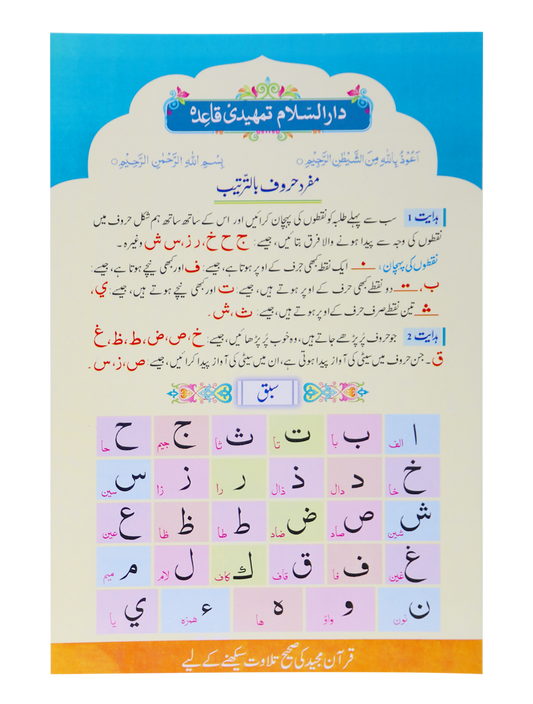 دارالسّلام تمھیدی قاعِدہ
اَعُوْذُ بِاللّٰهِ مِنَ الشَّيْطٰنِ الرَّجِيْمِ ○ بِسْمِ اللّٰهِ الرَّحْمٰنِ الرَّحِيْمِ ○
مفرد حروف بالتّرتیب
ہدایت 1 سب سے پہلے طلبہ کو نقطوں کی پہچان کرائیں اور اس کے ساتھ ساتھ ہم شکل حروف میں
نقطوں کی وجہ سے پیدا ہونے والا فرق بتائیں، جیسے: ج ح خ، ر ز، س ش وغیرہ۔
نقطوں کی پہچان: ـنـ ایک نقطہ کبھی حرف کے اوپر ہوتا ہے، جیسے: ف اور کبھی نیچے ہوتا ہے، جیسے:
ب، ـتـ دو نقطے کبھی حرف کے اوپر ہوتے ہیں، جیسے: ت اور کبھی نیچے ہوتے ہیں، جیسے: ي،
ـثـ تین نقطے صرف حرف کے اوپر ہوتے ہیں، جیسے: ث، ش۔
ہدایت 2 جو حروف پُر پڑھے جاتے ہیں، وہ خوب پُر پڑھائیں، جیسے: خ، ص، ض، ط، ظ، غ
ق۔ جن حروف میں سیٹی کی آواز پیدا ہوتی ہے، ان میں سیٹی کی آواز پیدا کرائیں، جیسے: ص، ز، س۔
سبق
ا الف ب با ت تا ث ثا ج جیم ح حا
خ خا د دال ذ ذال ر را ز زا س سین
ش شین ص صاد ض ضاد ط طا ظ ظا ع عین
غ غین ف فا ق قاف ك کاف ل لام م میم
ن نون و واؤ ه ھا ء ھمزہ ي یا
قرآن مجید کی صحیح تلاوت سیکھنے کے لیے